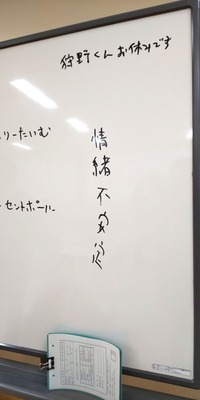 狩野くんお休みです
情緒不安定
リーたいむ
セントポール